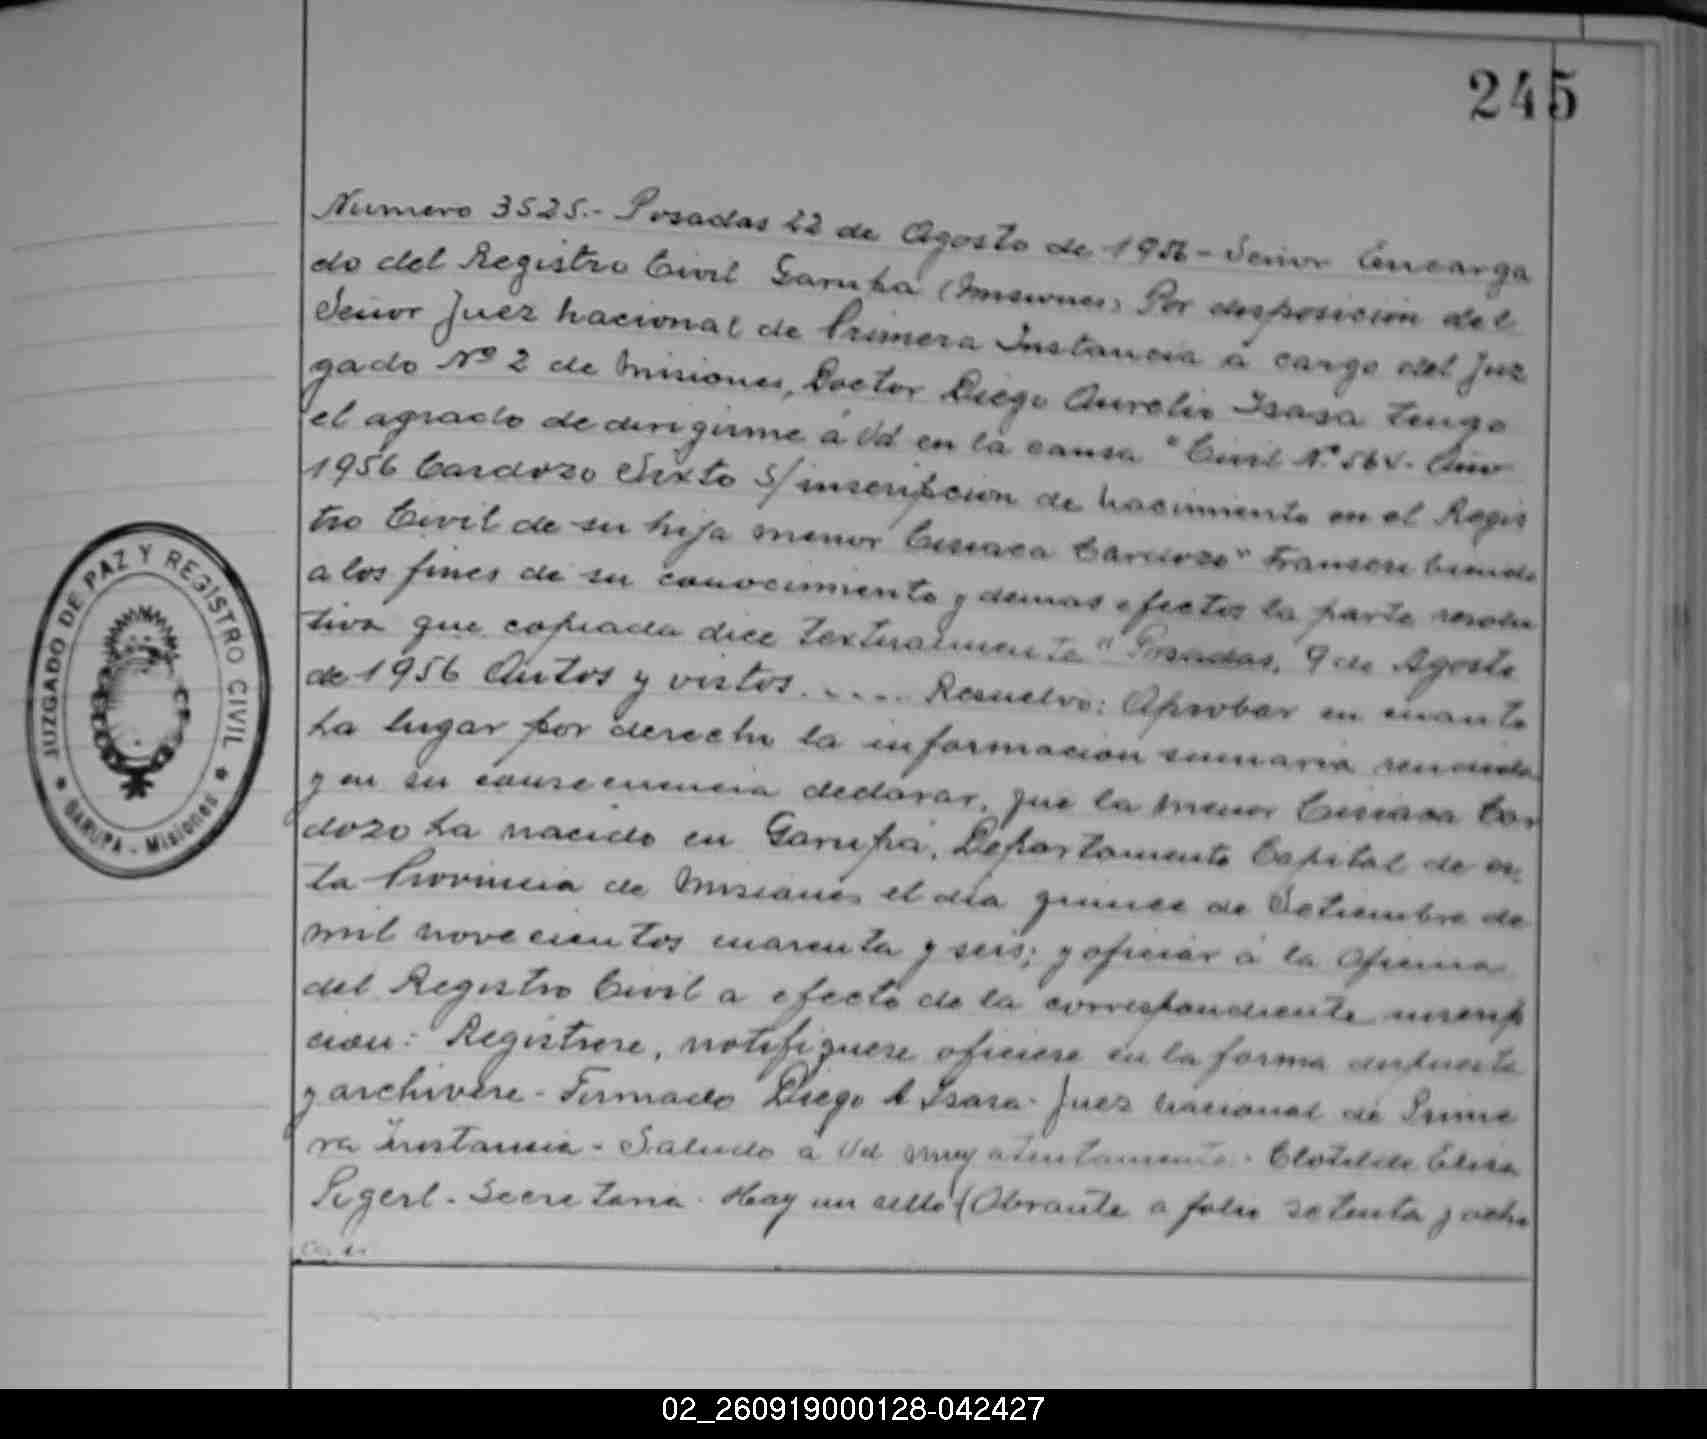 245
Numero 3525.- Posadas 22 de Agosto de 1956 - Señor Encarga
do del Registro Civil Garupa (Misiones) Por disposicion del
Señor Juez Nacional de Primera Instancia a cargo del Juz
gado Nº 2 de Misiones, Doctor Diego Aurelio Isasa tengo
el agrado de dirigirme á Vd en la causa "Civil Nº Año
1956 Cardozo Sixto S/inscripcion de Nacimiento en el Regis
tro Civil de su hija menor Cardozo" Transcribiendo
a los fines de su conocimiento y demas efectos la parte resolu
tiva que copiada dice textualmente "Posadas, 9 de Agosto
de 1956 Autos y vistos..... Resuelvo: Aprobar en cuanto
ha lugar por derecho la informacion sumaria rendida
y en su consecuencia declarar, que la menor Car
dozo ha nacido en Garupá, Departamento Capital de es
ta Provincia de Misiones el dia quince de Setiembre de
mil novecientos cuarenta y seis; y oficiar á la Oficina
del Registro Civil a efecto de la correspondiente inscrip
cion: Registrese, notifiquese oficiese en la forma dispuesta
y archivese - Firmado Diego A Isasa - Juez Nacional de Prime
ra Instancia - Saludo a Vd muy atentamente - Clotilde Elisa
- Secretaria - Hay un sello (Obrante a folio setenta y ocho
JUZGADO DE PAZ Y REGISTRO CIVIL
GARUPA - Misiones
02_260919000128-042427